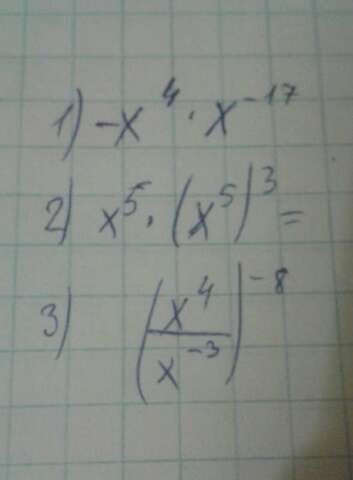 1) -x⁴ · x⁻¹⁷
2) x⁵ · (x⁵)³ =
3) (x⁴/x⁻³)⁻⁸